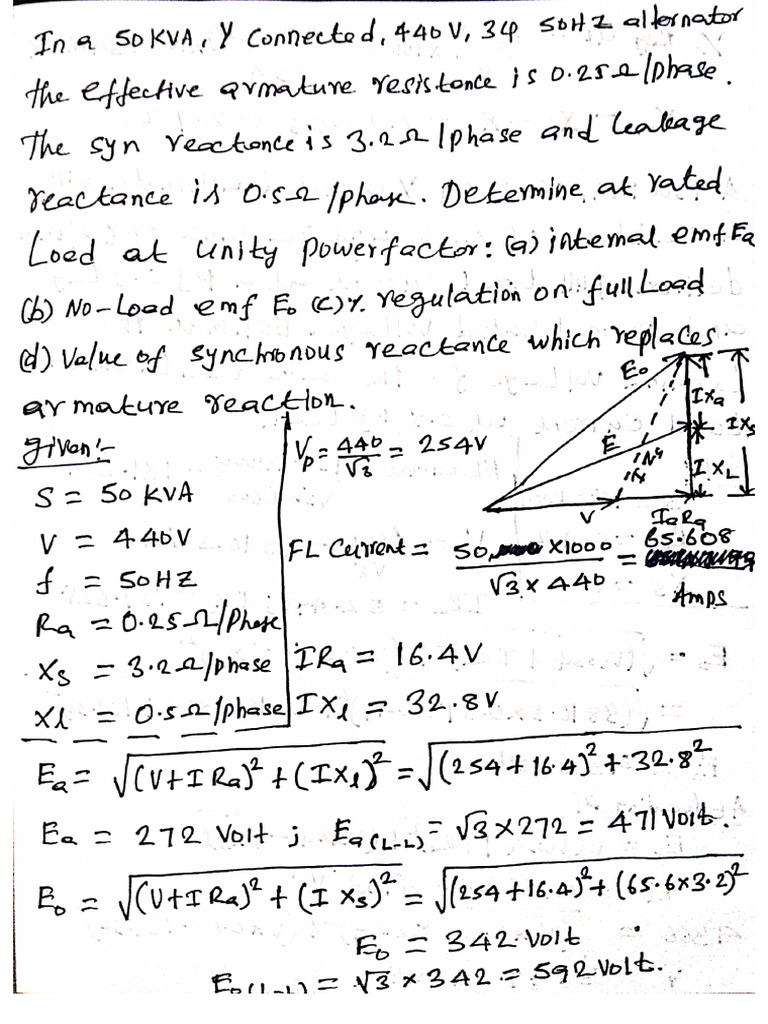 In a 50 KVA, Y Connected, 440V, 3φ 50HZ alternator
the effective armature resistance is 0.25Ω/phase.
The syn reactance is 3.2Ω/phase and leakage
reactance is 0.5Ω/phase. Determine at rated
Load at unity power factor: (a) internal emf Ea
(b) No-Load emf E₀ (c) % regulation on full Load
(d) Value of synchronous reactance which replaces
armature reaction.
given:-
S = 50 KVA
V = 440V
f = 50HZ
Ra = 0.25Ω/Phase
Xs = 3.2Ω/phase
Xl = 0.5Ω/phase
Vp = 440/√3 = 254V
E₀
IXa
IXs
E
IXL
V
IaRa
FL Current = 50 ×1000 / √3 × 440 = 65.608 Amps
IRa = 16.4V
IXl = 32.8V
Ea = √(V+IRa)² + (IXl)² = √(254+16.4)² + 32.8²
Ea = 272 Volt ; Ea(L-L) = √3×272 = 471 Volt.
E₀ = √(V+IRa)² + (IXs)² = √(254+16.4)² + (65.6×3.2)²
E₀ = 342 Volt
E₀(L-L) = √3 × 342 = 592 Volt.